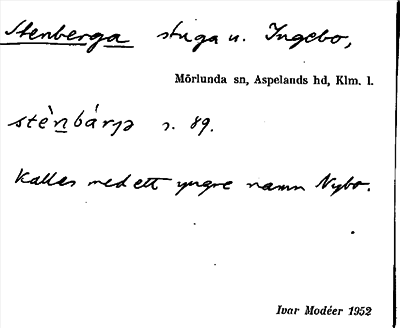 Stenberga stuga u. Ingebo,
Mörlunda sn, Aspelands hd, Klm. l.
stènbárjə s. 89.
Kallas med ett yngre namn Nybo.
Ivar Modéer 1952